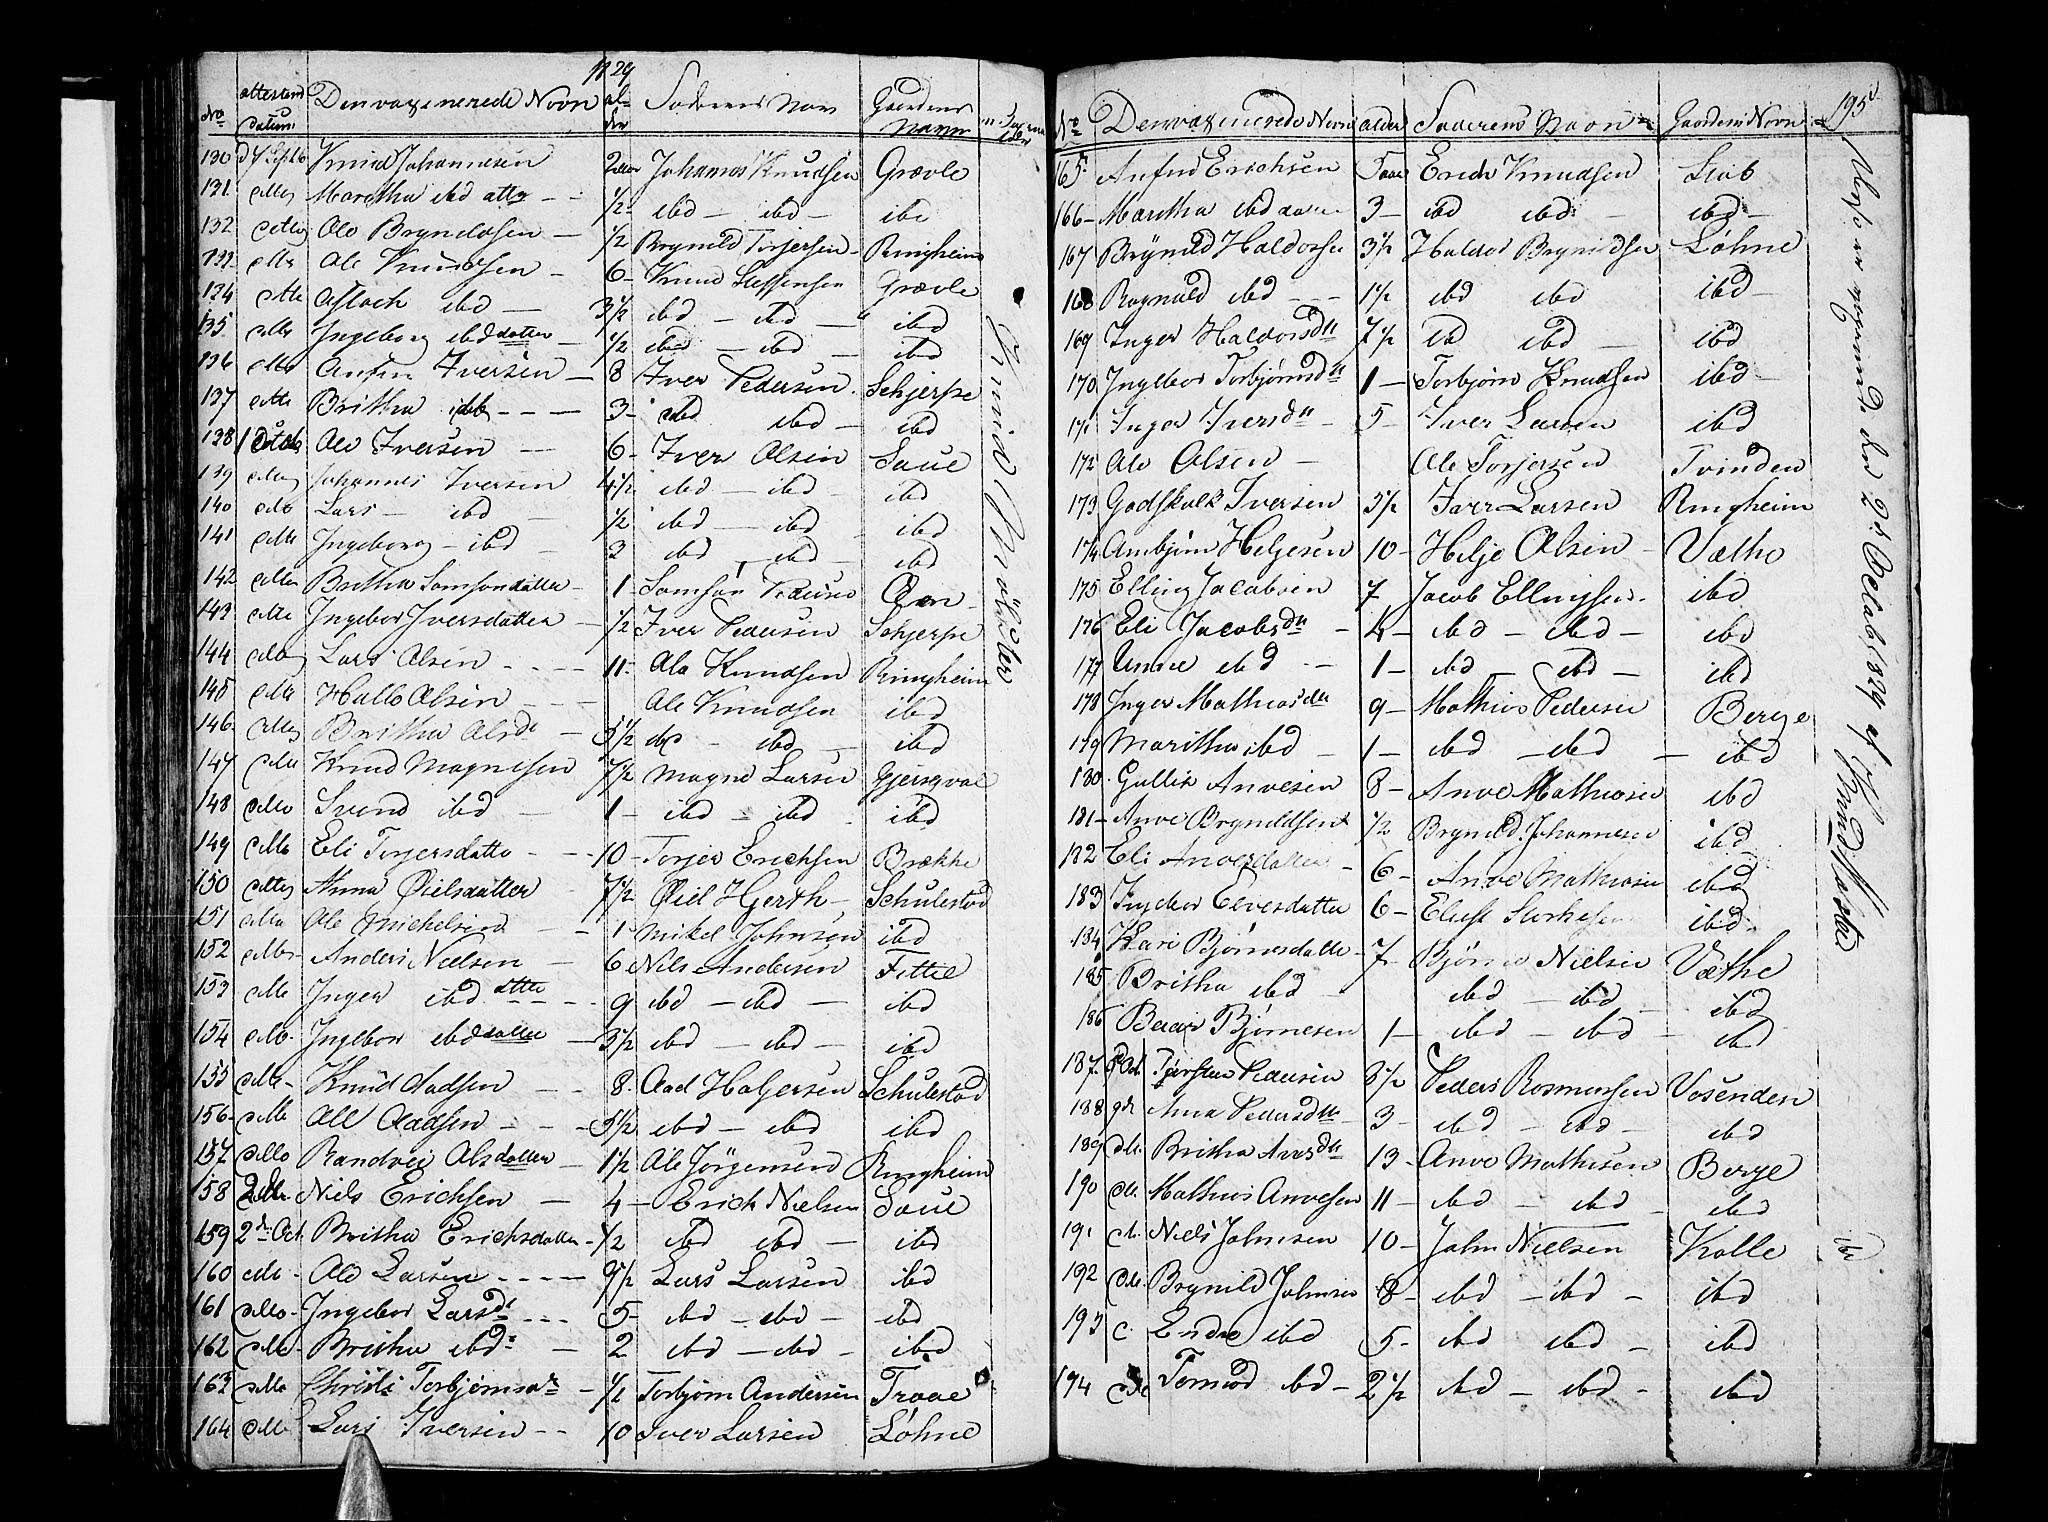 1829
No attestens datum Den vaxenerede Navn alder Faderens Navn Gaardens Navn
130 d 7 Sept Knud Johannesen 2 Johannes Knudsen Grævle
131 ditto Maritha ibd datter ½ ibd – ibd – ibd
132 ditto Ole Bryndelsen ½ Brynild Torjersen Ringheim
133 ditto Ole Knudsen 6 Knud Steffensen Grævle
134 ditto Aslach ibd 3½ ibd – ibd – ibd
135 ditto Ingeborg ibd datter ½ ibd – ibd – ibd
136 ditto Anfin Iversen 8 Iver Pedersen Schjerpe
137 ditto Britha ibd 3 ibd ibd – ibd
138 Ole Iversen 6 Iver Olsen Saue
139 ditto Johannes Iversen 4½ ibd – ibd – ibd
140 ditto Lars – ibd ½ ibd – ibd – ibd
141 ditto Ingeborg – ibd 3 ibd – ibd – ibd
142 ditto Britha Samsondatter 1 Samson Pedersen
143 ditto Ingebor Iversdatter ½ Iver Pedersen Schjerpe
144 ditto Lars Olsen 11 Ole Knudsen Ringheim
145 ditto Halle Olsen Ole Knudsen ibd
146 ditto Britha Olsdt 5½ ibd – ibd – ibd
147 ditto Knud Magnesen 7½ Magne Larsen
148 ditto Svend ibd 1 – ibd – ibd – ibd
149 ditto Eli Torjersdatte 10 Torjer Erichsen Brække
150 ditto Anna Odelsdatter 7½ Hjerth Schulestad
151 ditto Ole Michelsen 1 Mikel Johnsen ibd
152 ditto Anders Nielsen 6 Nils Andersen Fittie
153 ditto Inger ibd datter 9 ibd – ibd – ibd
154 ditto Ingebor ibd datter 3½ ibd – ibd – ibd
155 ditto Knud Aadsen 8 Aad Holgersen Schulestad
156 ditto Ole Aadsen 5½ ibd – ibd ibd
157 ditto Randvei Olsdatter 1½ Ole Jörgensen Ringheim
158 Niels Erichsen 4 Erich Nielsen Saue
159 2d Oct. Britha Erichsdatter ½ ibd ibd – ibd
160 ditto Ole Larsen 9½ Lars Larsen ibd
161 ditto Ingebor Larsdt 5 ibd – ibd – ibd
162 ditto Britha ibd 2 ibd – ibd – ibd
163 ditto Torbjørnsdr ½ Torbjørn Andersen Traae
164 ditto Lars Iversen 10 Iver Larsen Løhne
Knud Mölster
195
No Den vaxinerede Navn alder Faderens Navn Gaardens Navn
165 Erichsen Erich Knudsen
166 Maritha ibd 3 ibd ibd – ibd
167 Brynild Haldorsen 3½ Haldor Brynildsen Løhne
168 Ragnald ibd 1½ ibd ibd ibd
169 Inger Haldorsdtr 7½ ibd ibd – ibd
170 Ingebor Torbjørnsdtr 1 Torbjørn Knudsen ibd
171 Inger Iversdtr 5 Iver Larsen ibd
172 Ole Olsen Ole Torjersen Tvinden
173 Godskalk Iversen 5½ Iver Larsen Ringheim
174 Ambjørn Helgesen 10 Helje Olsen Væthe
175 Elling Jacobsen 7 Jacob Ellingsen ibd
176 Eli Jacobsdtr 4 ibd – ibd – ibd
177 ibd 1 ibd – ibd – ibd
178 Inger Mathiasdtr 9 Mathias Pedersen Berge
179 Maritha ibd 1 ibd – ibd – ibd
180 Gullik Anvesen 8 Anve Mathiasen ibd
181 Anve Bryneldsen ½ Brynild Johannesen ibd
182 Eli Anvesdatter 6 Anve Mathiasen ibd
183 Ingebor Elevesdatter 6 ibd
184 Kari Bjørnesdatte 7 Bjørne Nielsen Væthe
185 Britha ibd ibd – ibd – ibd
186 Bjørnesen 1 ibd – ibd ibd
187 Pedersen 3½ Peders Rasmussen Vosenden
188 Anna Pedersdtr 3 ibd – ibd – ibd
189 Britha Anvesdtr 13 Anve Mathisen Berge
190 Mathias Anvesen 11 ibd – ibd – ibd
191 Niels Johnsen 10 John Nielsen Kolle
192 Brynild Johnsen 8 ibd – ibd – ibd
193 Endre ibd 5 ibd ibd – ibd
194 ibd 2½ ibd – ibd – ibd
den 2d Octob. 1829 af Knud Mölster